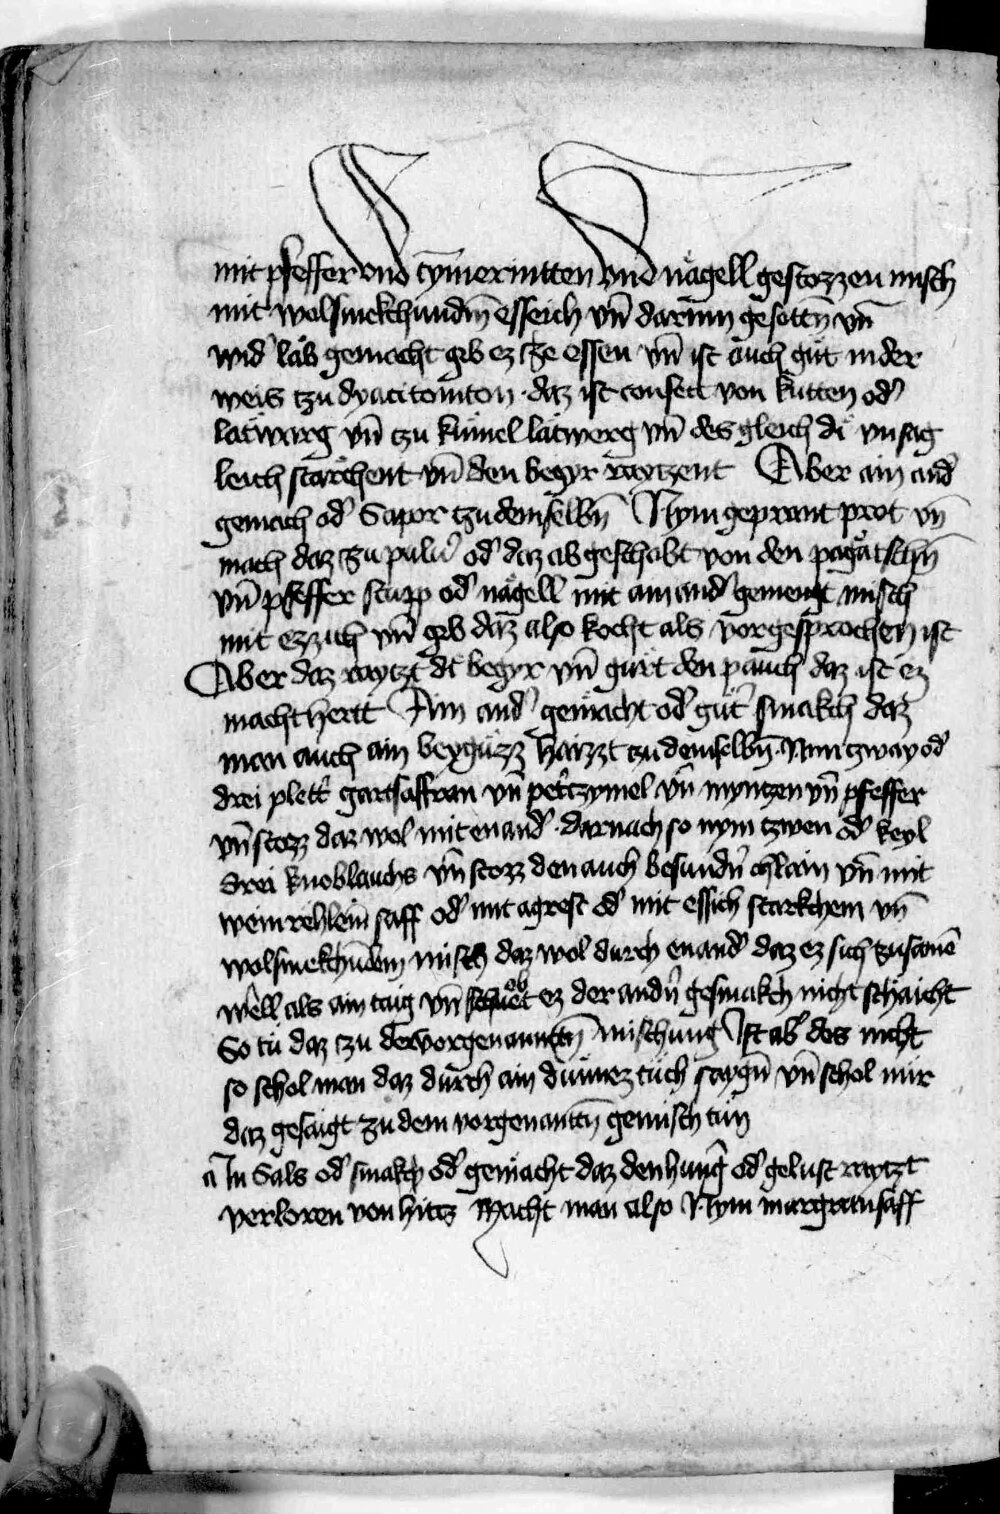 mit pfeffer vnd cÿmerintten vnd nägell gestozzen misch
mit wolsmekchundm̄ essich vn̄ darinn gesottn̄ vn̄
wid' lāb gemacht geb ez cze essen vn̄ ist auch gůt in der
weis tzu dyacitoniton · daz ist consect von kütten od'
latwarg vn̄ tzu kümel lätwerg vn̄ des gleich di vnsag
leich starchent vn̄ den begyr raytzent Aber ain and'
gemach od' Sapor tzu demselbn̄ Nym geprant prot vn̄
mach daz zu pulu' od' daz abgeschabt von den pagätschn̄
vn̄ pfeffer stupp od' nägell mit ain and' gemengt misch
mit ezzich vn̄ geb daz also kocht als vorgesprochen ist
Aber daz raytzt di begyr vn̄ gürt den pauch daz ist ez
macht hertt Ain and' gemächt od' gůt' smakch daz
man auch ain beygüzz haizzt tzu demselbn̄ · Nim tzway od'
drei plett' gartsaffran vn̄ pet'tzymel vn̄ myntzen vn̄ pfeffer
vn̄ stozz daz wol mit enand' · darnach so nym tzwen od' keyl
drei knoblauchs vn̄ stozz den auch besundn̄ chlain vn̄ mit
weinreblein̄ saff od' mit agrest od' mit essich starkchem vn̄
wolsmekchūdem misch daz wol durch enand' daz ez sich zusamē
well als ain taig vn̄ ob ez der andn̄ gesmakch nicht schaicht
So tů daz tzu dervorgenanntn̄ mischung Ist ab' des nicht
so schol man daz durch ain dünnez tůch saygn̄ vn̄ schol nür
daz gesaigt zu dem vorgenantn̄ gemisch tün
a In Sals od' smakch od' gemächt daz den hung' od' gelust raytzt
verloren von hitz Macht man also Nym margransaff